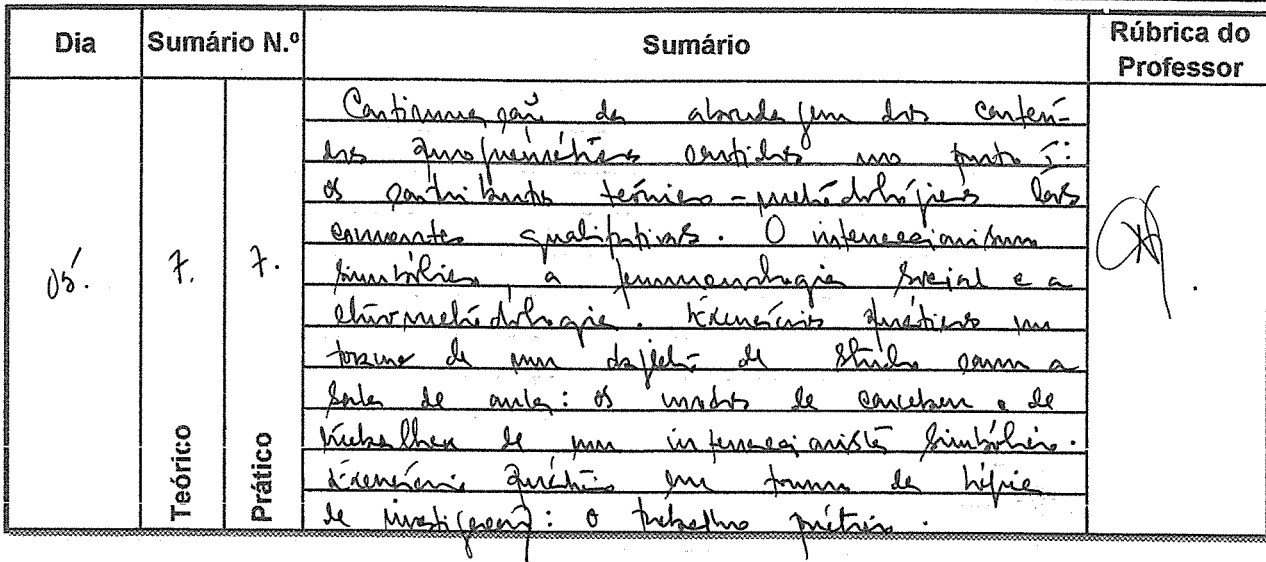 Dia Sumário N.º Sumário Rúbrica do Professor
Teórico Prático
05. 7. 7.
Continuação da abordagem dos conteú-
dos programáticos contidos no ponto 5:
os contributos teórico-metodológicos das
correntes qualitativas. O interaccionismo
simbólico, a fenomenologia social e a
etnometodologia. Exercícios práticos em
torno de um objecto de estudo como a
sala de aula: os modos de conceber e de
trabalhar de um interaccionista simbólico.
Exercício prático em torno da
de investigação: o trabalho prático.